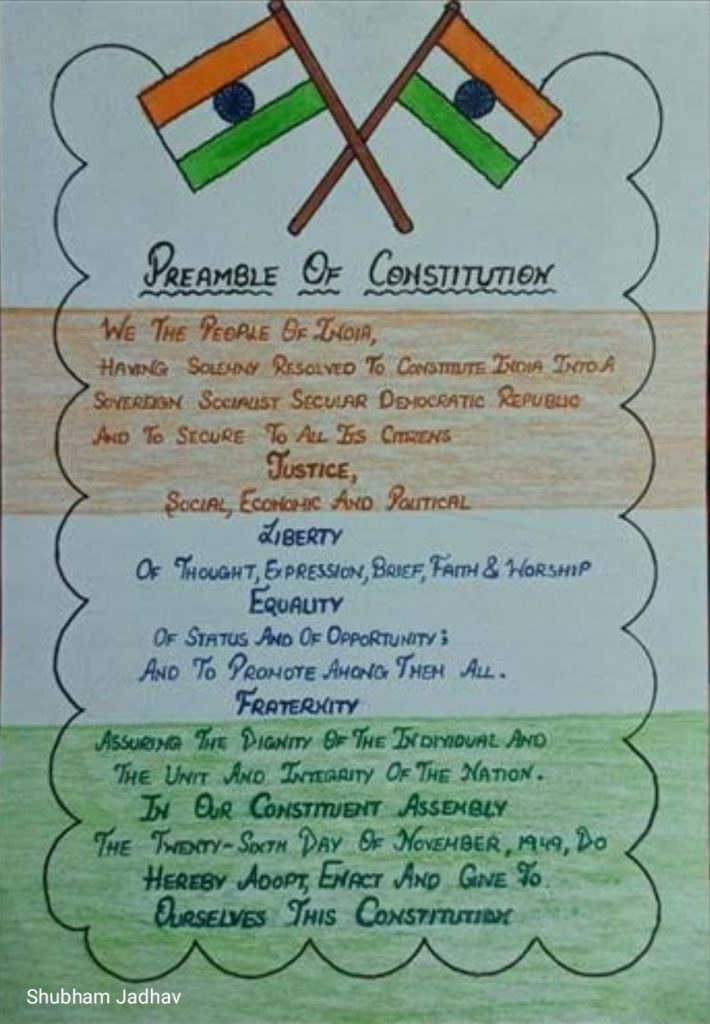 PREAMBLE OF CONSTITUTION
WE THE PEOPLE OF INDIA,
HAVING SOLEMNY RESOLVED TO CONSTITUTE INDIA INTO A
SOVEREIGN SOCIALIST SECULAR DEMOCRATIC REPUBLIC
AND TO SECURE TO ALL ITS CITIZENS
JUSTICE,
SOCIAL, ECONOMIC AND POLITICAL
LIBERTY
OF THOUGHT, EXPRESSION, BRIEF, FAITH & WORSHIP
EQUALITY
OF STATUS AND OF OPPORTUNITY;
AND TO PROMOTE AMONG THEM ALL.
FRATERNITY
ASSURING THE DIGNITY OF THE INDIVIDUAL AND
THE UNIT AND INTEGRITY OF THE NATION.
IN OUR CONSTITUENT ASSEMBLY
THE TWENTY-SIXTH DAY OF NOVEMBER, 1949, DO
HEREBY ADOPT, ENACT AND GIVE TO
OURSELVES THIS CONSTITUTION
Shubham Jadhav